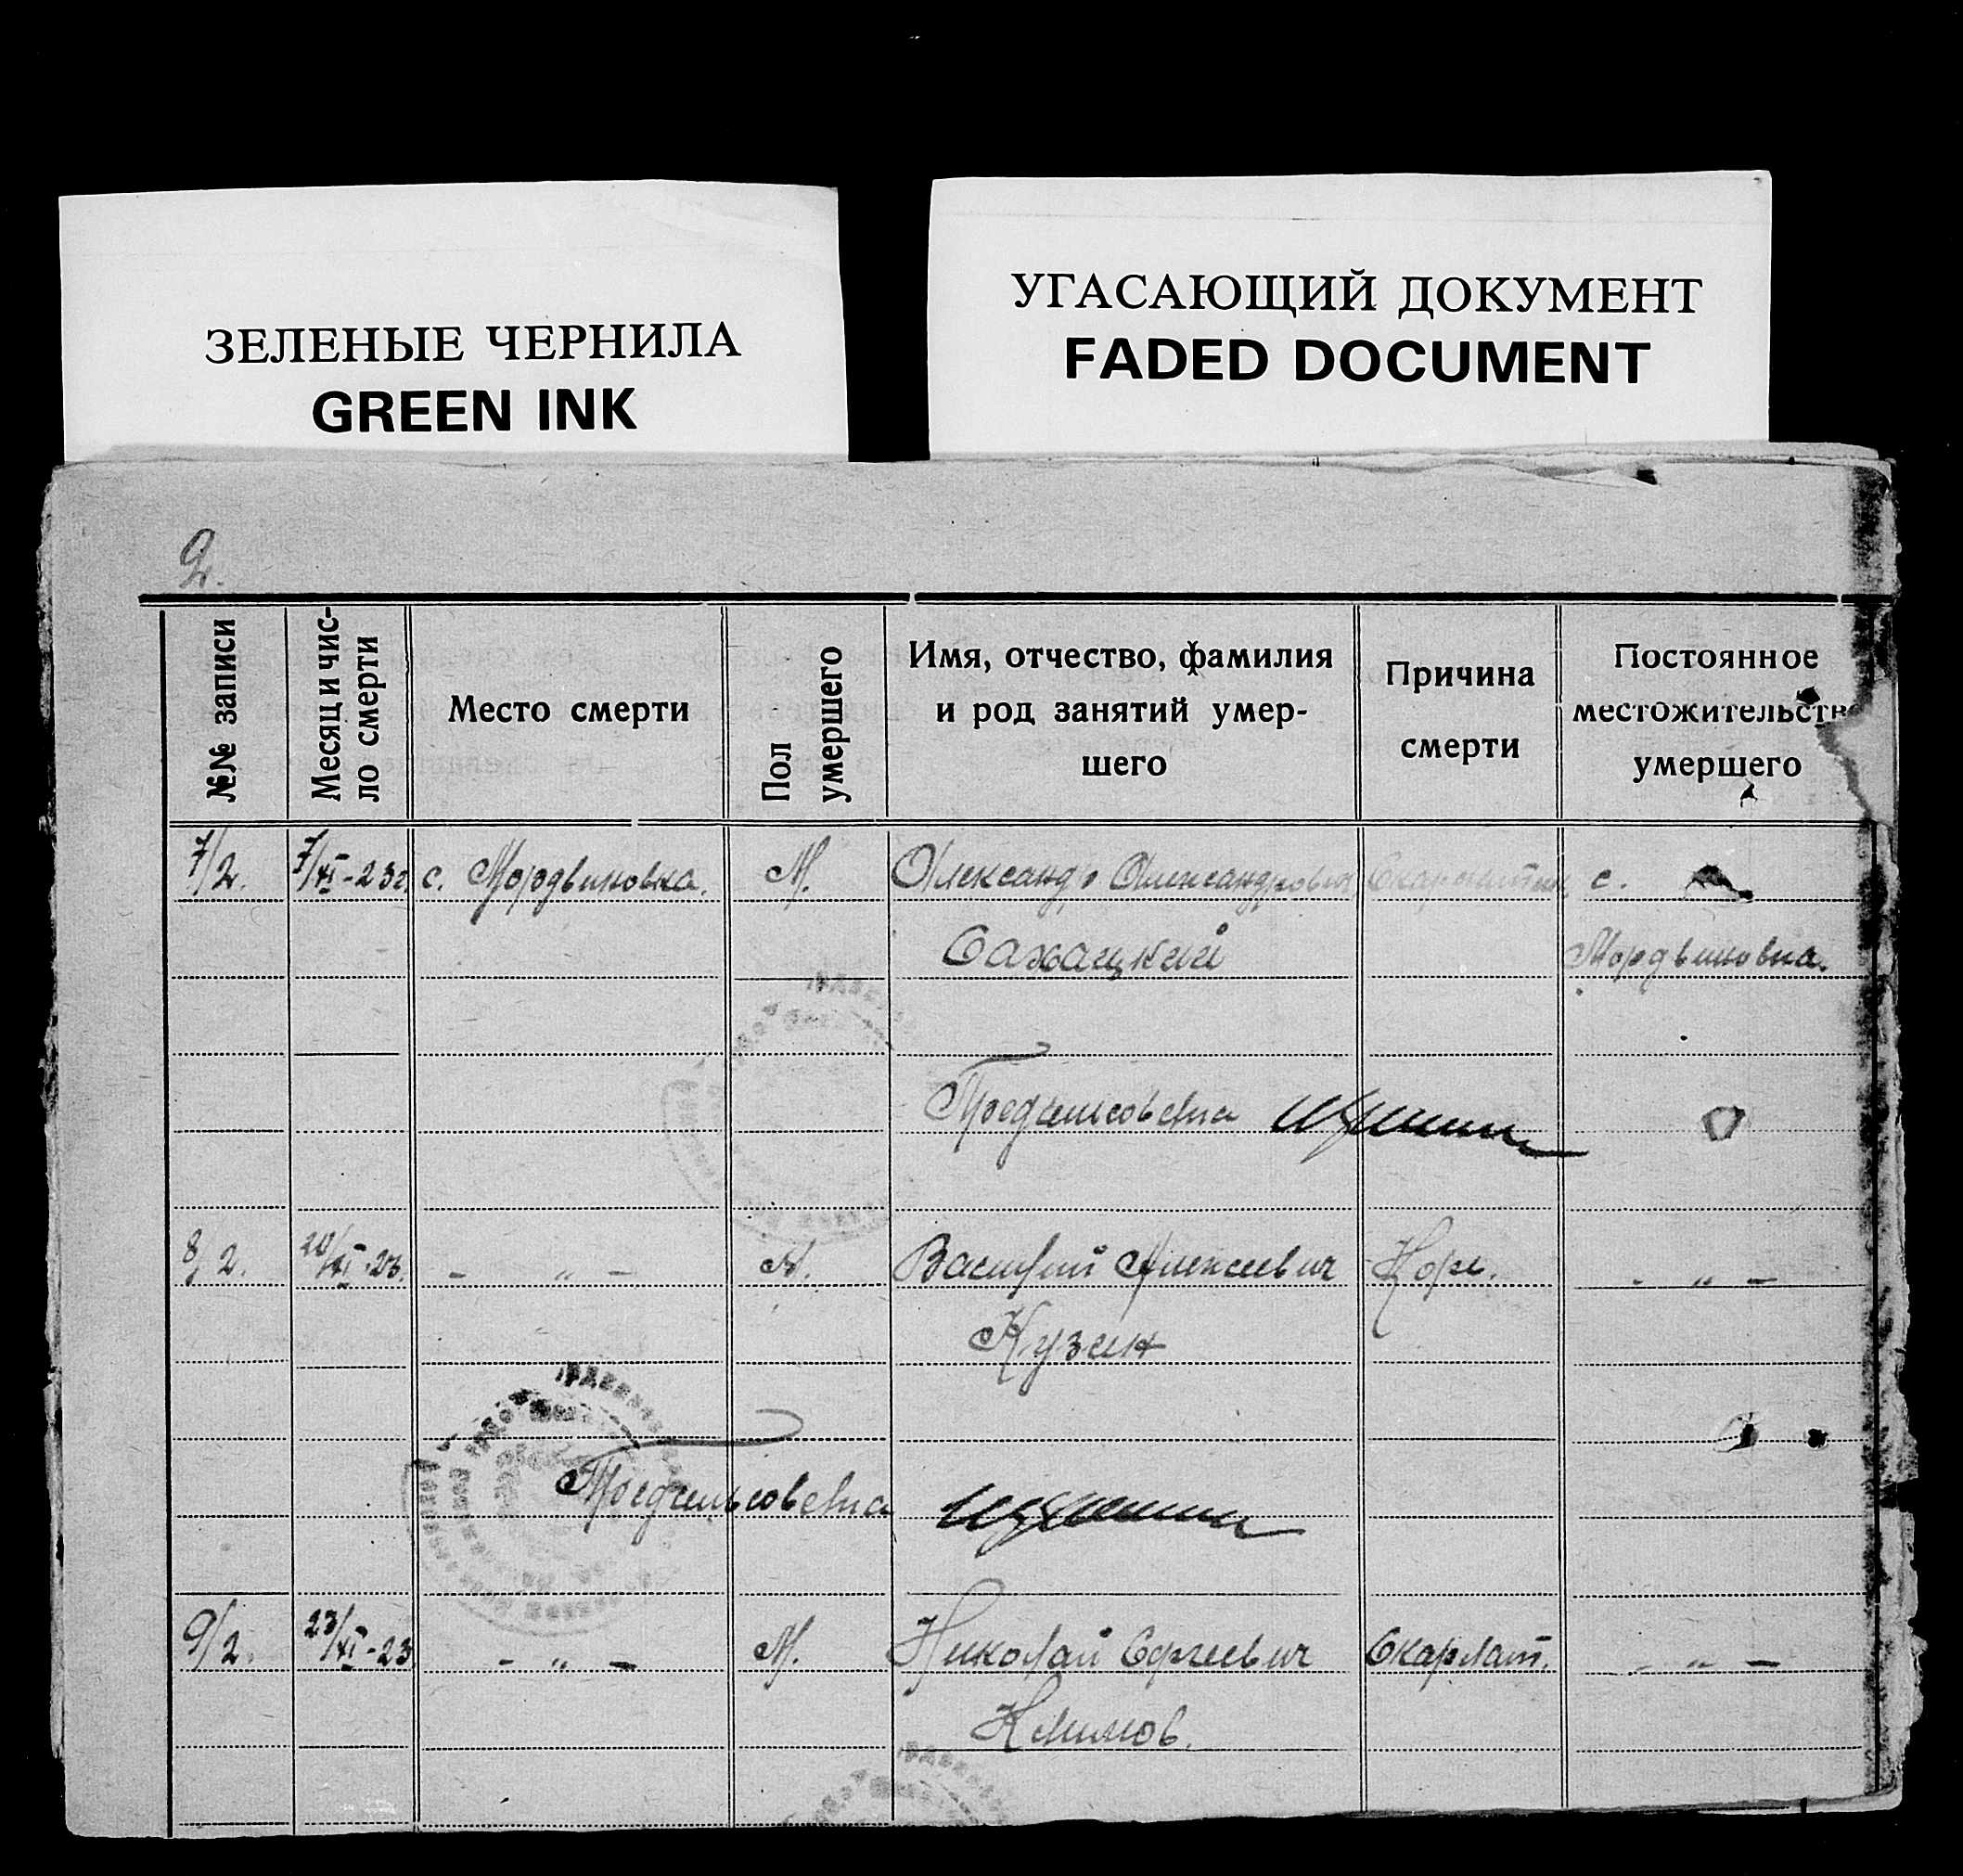 ЗЕЛЕНЫЕ ЧЕРНИЛА
GREEN INK
УГАСАЮЩИЙ ДОКУМЕНТ
FADED DOCUMENT
2.
№№ записи
Месяц и чис-
ло смерти
Место смерти
Пол
умершего
Имя, отчество, фамилия
и род занятий умер-
шего
Причина
смерти
Постоянное
местожительство
умершего
7/2. 7/XI-23г. с. Мордвиновка. М. Александр Александрович Скарлатин с.
Сахацкий Мордвиновка.
Предсельсовета
8/2. 20/XI-23. - „ - М. Василий Алексеевич Корь. - „ -
Кузин
Предсельсовета
9/2. 23/XI-23 - „ - М. Николай Сергеевич Скарлат. - „ -
Климов.